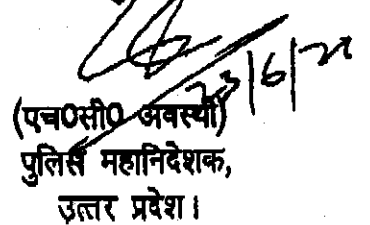 23/6/20
(एच0सी0 अवस्थी)
पुलिस महानिदेशक,
उत्तर प्रदेश।